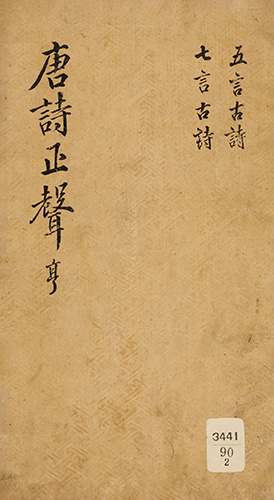 五言古詩
七言古詩
唐詩正聲 亨
3441
90
2